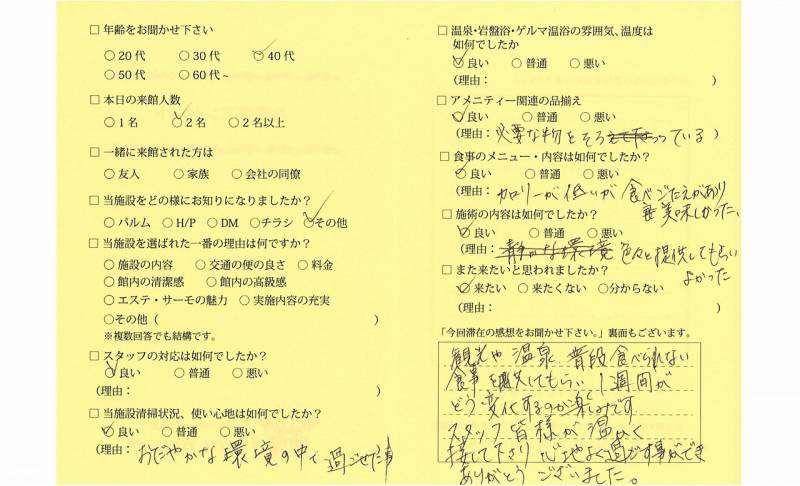 □ 年齢をお聞かせ下さい
○ 20 代 ○ 30 代 ○ 40 代
○ 50 代 ○ 60 代 ~
□ 本日の来館人数
○ 1 名 ○ 2 名 ○ 2 名以上
□ 一緒に来館された方は
○ 友人 ○ 家族 ○ 会社の同僚
□ 当施設をどの様にお知りになりましたか?
○ パルム ○ H/P ○ DM ○チラシ ○その他
□ 当施設を選ばれた一番の理由は何ですか?
○ 施設の内容 ○ 交通の便の良さ ○ 料金
○ 館内の清潔感 ○ 館内の高級感
○ エステ・サーモの魅力 ○ 実施内容の充実
○その他 ( )
※複数回答でも結構です。
□ スタッフの対応は如何でしたか?
○ 良い ○ 普通 ○ 悪い
(理由: )
□ 当施設清掃状況、使い心地は如何でしたか?
○ 良い ○ 普通 ○ 悪い
(理由: おだやかな環境の中で過ごせた
□ 温泉・岩盤浴・ゲルマ温浴の雰囲気、温度は
如何でしたか
○ 良い ○ 普通 ○ 悪い
(理由: )
□ アメニティー関連の品揃え
○ 良い ○ 普通 ○ 悪い
(理由: 必要な物をそろっている )
□ 食事のメニュー・内容は如何でしたか?
○ 良い ○ 普通 ○ 悪い
(理由: カロリーが低いが食べごたえがあり
美味しかった。
□ 施術の内容は如何でしたか?
○ 良い ○ 普通 ○ 悪い
(理由: 静かな環境 色々と提供してもらい
よかった
□ また来たいと思われましたか?
○ 来たい ○ 来たくない ○分からない
(理由: )
「今回滞在の感想をお聞かせ下さい。」裏面もございます。
観光や温泉、普段食べられない
食事を してもらい 1週間が
どう変化するのか楽しみです
スタッフ皆様が温かく
接して下さり心地よく過ごす事ができ
ありがとうございました。